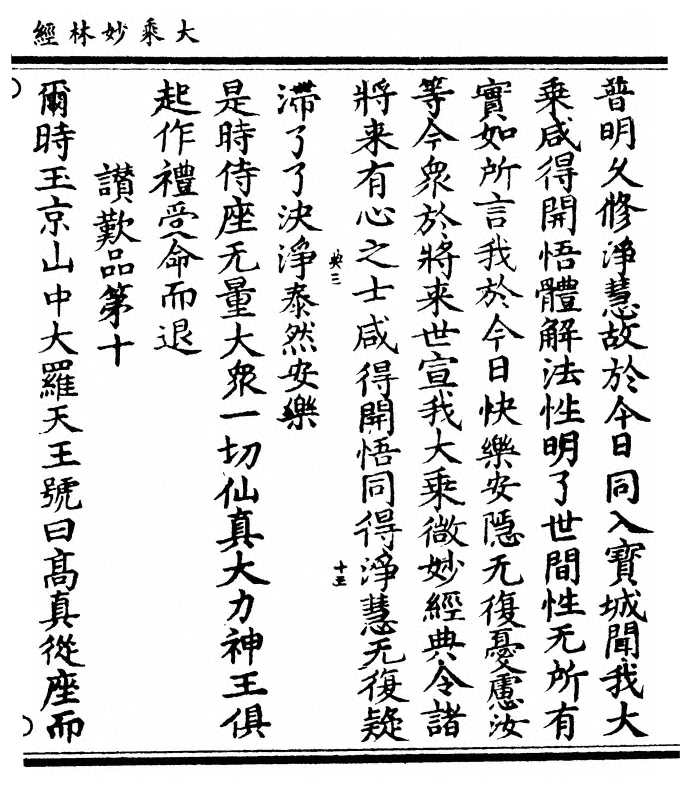 大乘妙林經
普明久修淨慧故於今日同入寳城聞我大
乘咸得開悟體解法性明了世間性无所有
實如所言我於今日快樂安隱无復憂慮汝
等今衆於將来世宣我大乘微妙經典令諸
將来有心之士咸得開悟同得淨慧无復疑
典三
十五
滯了了決淨泰然安樂
是時侍座无量大衆一切仙真大力神王俱
起作禮受命而退
讃歎品第十
爾時玉京山中大羅天王號曰髙真從座而